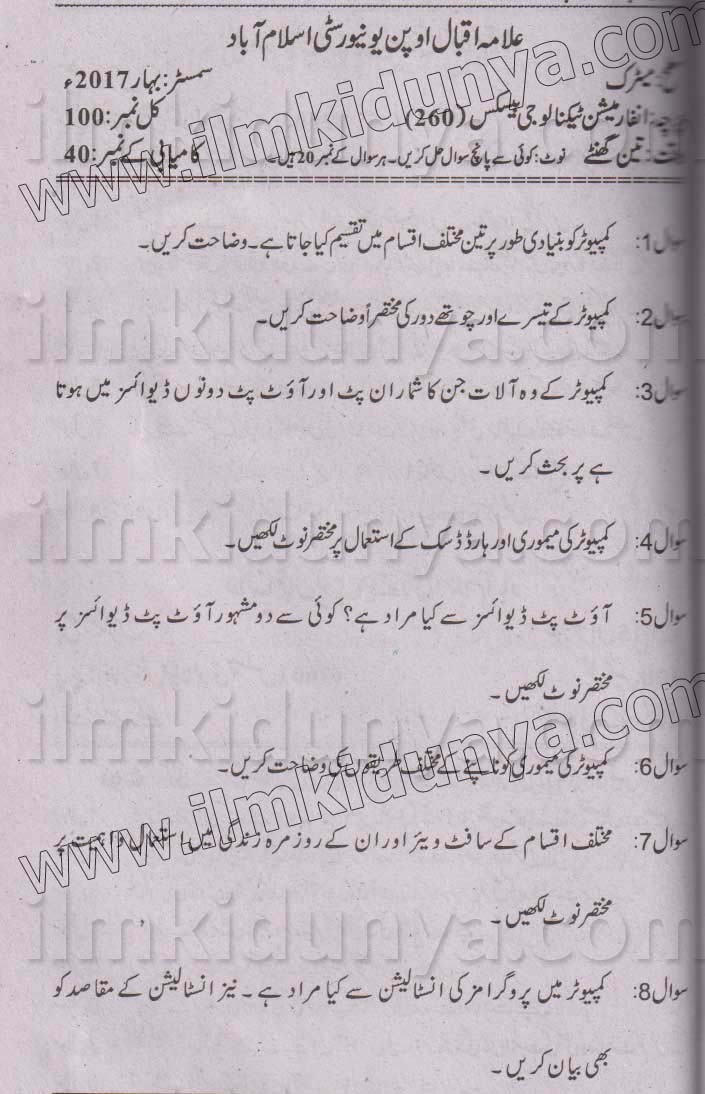 علامہ اقبال اوپن یونیورسٹی اسلام آباد
سطح: میٹرک سمسٹر: بہار 2017ء
پرچہ: انفارمیشن ٹیکنالوجی بیسکس (260) کل نمبر: 100
وقت: تین گھنٹے نوٹ: کوئی سے پانچ سوال حل کریں۔ ہر سوال کے نمبر 20 ہیں۔ کامیابی کے نمبر: 40
سوال 1: کمپیوٹر کو بنیادی طور پر تین مختلف اقسام میں تقسیم کیا جاتا ہے۔ وضاحت کریں۔
سوال 2: کمپیوٹر کے تیسرے اور چوتھے دور کی مختصراً وضاحت کریں۔
سوال 3: کمپیوٹر کے وہ آلات جن کا شمار ان پٹ اور آؤٹ پٹ دونوں ڈیوائسز میں ہوتا
ہے پر بحث کریں۔
سوال 4: کمپیوٹر کی میموری اور ہارڈ ڈسک کے استعمال پر مختصر نوٹ لکھیں۔
سوال 5: آؤٹ پٹ ڈیوائسز سے کیا مراد ہے؟ کوئی سے دو مشہور آؤٹ پٹ ڈیوائسز پر
مختصر نوٹ لکھیں۔
سوال 6: کمپیوٹر کی میموری کو ناپنے کے مختلف طریقوں کی وضاحت کریں۔
سوال 7: مختلف اقسام کے سافٹ ویئر اور ان کے روزمرہ زندگی میں استعمال و اہمیت پر
مختصر نوٹ لکھیں۔
سوال 8: کمپیوٹر میں پروگرامز کی انسٹالیشن سے کیا مراد ہے۔ نیز انسٹالیشن کے مقاصد کو
بھی بیان کریں۔
www.ilmkidunya.com
ilmkidunya.com
ilmkidunya.com
ilmkidunya.com
www.ilmkidunya.com
ilmkidunya.com
ilmkidunya.com